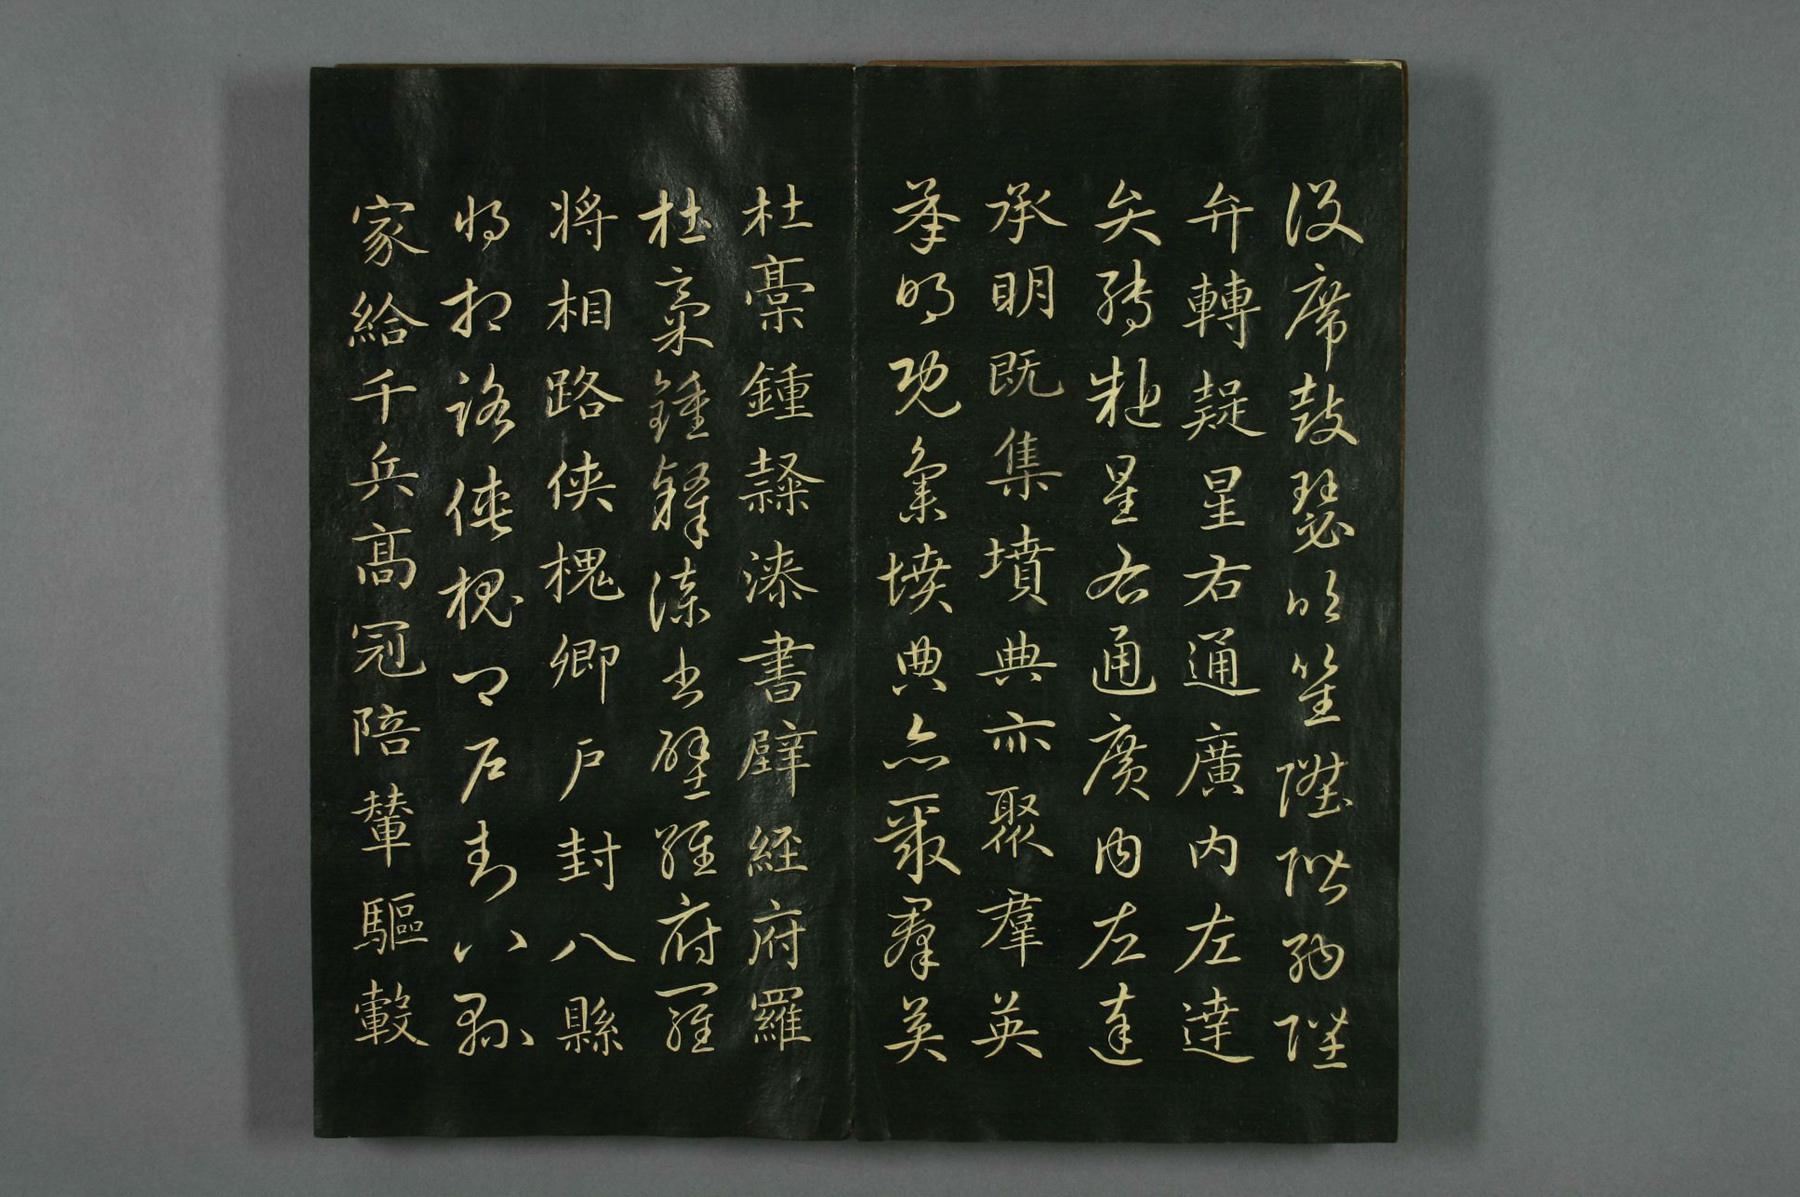 設席鼓瑟吹笙陞階納陛
弁轉疑星右通廣内左達
弁轉疑星右通廣内左達
承明既集墳典亦聚羣英
承明既集墳典亦聚羣英
杜稾鍾隸漆書壁經府羅
杜稾鍾隸漆書壁經府羅
將相路俠槐卿戶封八縣
將相路俠槐卿戶封八縣
家給千兵高冠陪輦驅轂